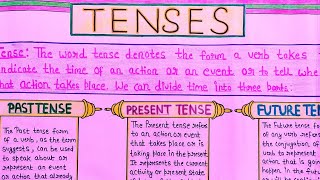 TENSES
Tense: The word tense denotes the form a verb takes
indicate the time of an action or an event or to tell whe
that action takes place. We can divide time into three parts:
PAST TENSE
The Past tense form
of a verb, as the term
suggests, can be used
to speak about or
represent an event
or action that already
PRESENT TENSE
The Present tense refers
to an action or event
that takes place or is
taking place in the present.
It represents the current
activity or present state
FUTURE TEN
The Future tense for
of any verb refers
the conjugation, of
verb to represent
action that is goin
happen. In the
verb is to repres